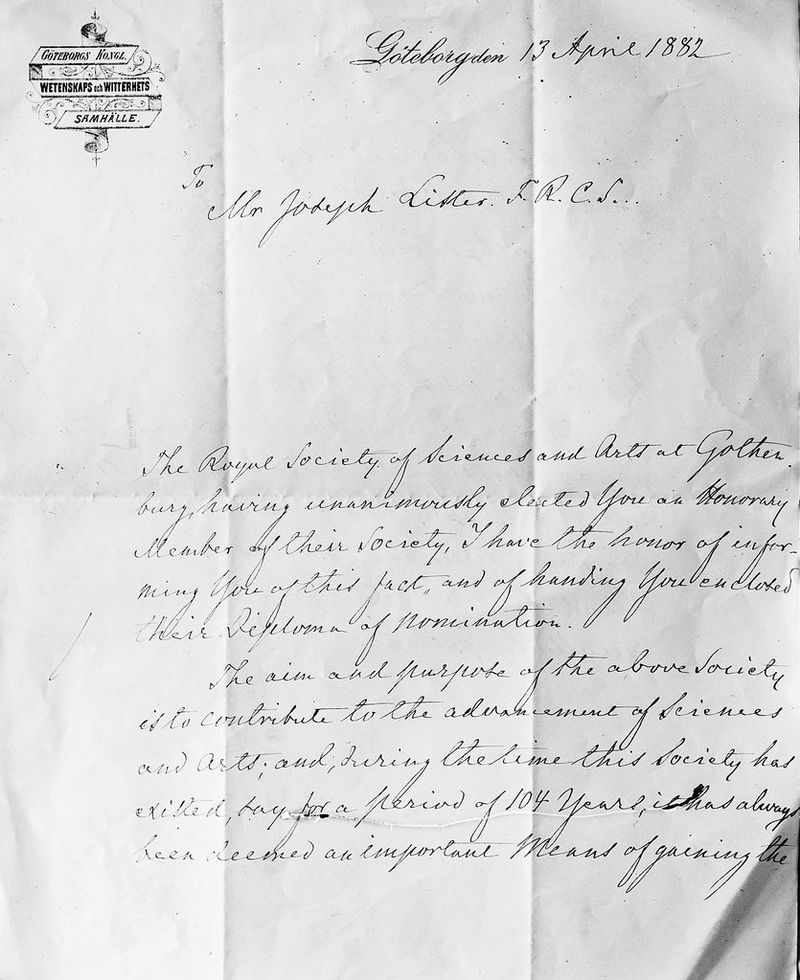 GÖTEBORGS KONGL.
WETENSKAPS och WITTERHETS
SAMHÄLLE.
Göteborg den 13 April 1882
To
Mr Joseph Lister. F. R. C. S...
The Royal Society of Sciences and Arts at Gothen
burg, having unanimously elected You an Honorary
Member of their Society, I have the honor of infor-
ming You of this fact, and of handing You enclosed
their Diploma of nomination.
The aim and purpose of the above Society
is to contribute to the advancement of Sciences
and Arts; and, during the time this Society has
existed, say for a period of 104 Years, it has always
been deemed an important Means of gaining the